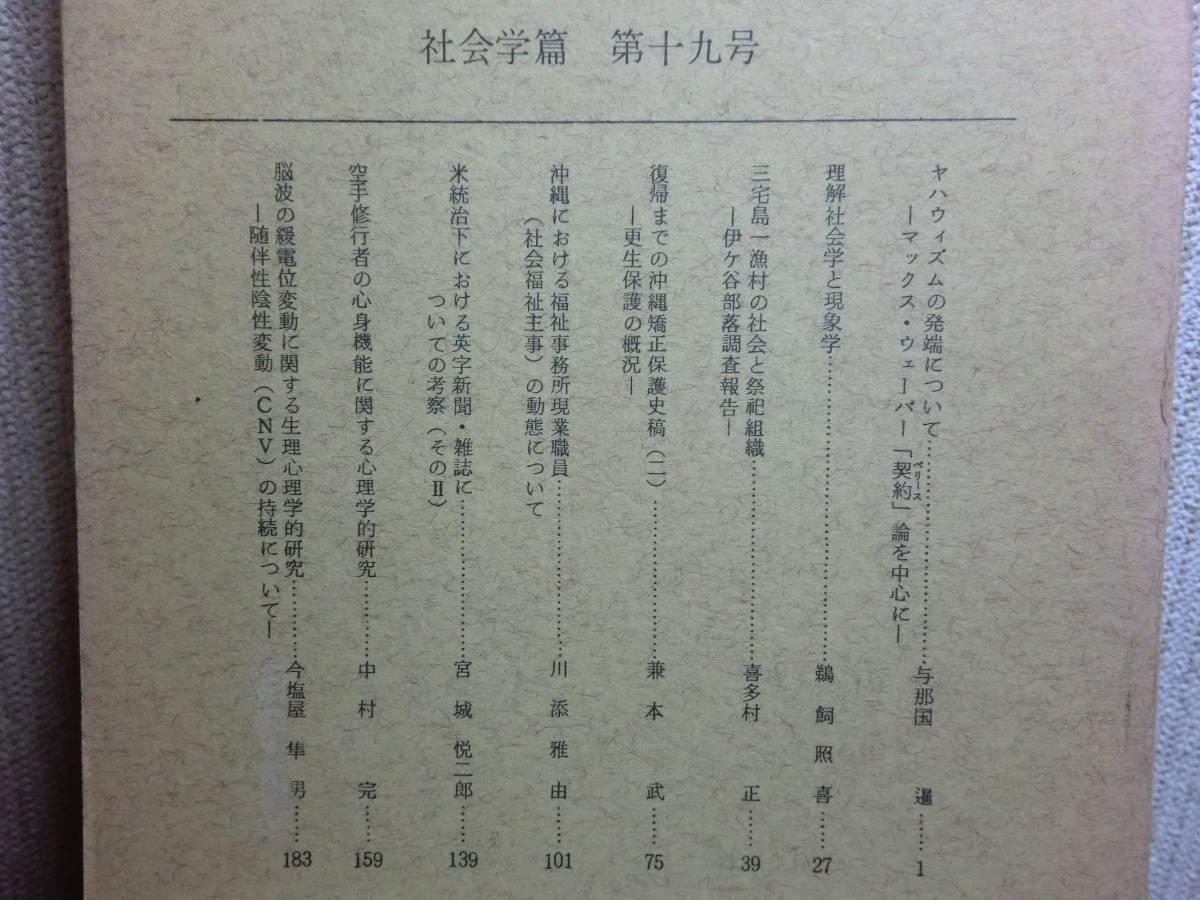 社会学篇 第十九号
ヤハウィズムの発端について…………………………与那国 暹……1
―マックス・ウェーバー「契約」論を中心に―
ベリース
理解社会学と現象学…………………………………鵜飼照喜……27
三宅島一漁村の社会と祭祀組織………………………喜多村 正……39
―伊ケ谷部落調査報告―
復帰までの沖縄矯正保護史稿(二)……………………兼本 武……75
―更生保護の概況―
沖縄における福祉事務所現業職員……………………川添雅由……101
(社会福祉主事)の動態について
米統治下における英字新聞・雑誌に……………………宮城悦二郎……139
ついての考察(そのⅡ)
空手修行者の心身機能に関する心理学的研究…………中村 完……159
脳波の緩電位変動に関する生理心理学的研究…………今塩屋隼男……183
―随伴性陰性変動(CNV)の持続について―